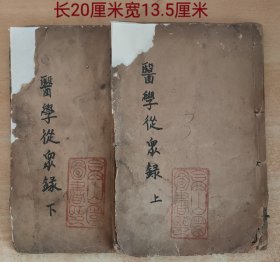 长20厘米宽13.5厘米
醫學從衆錄 上
醫學從衆錄 下